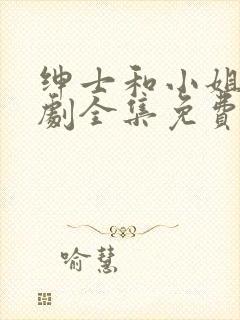 绅士和小姐
劇全集免費
喻慧